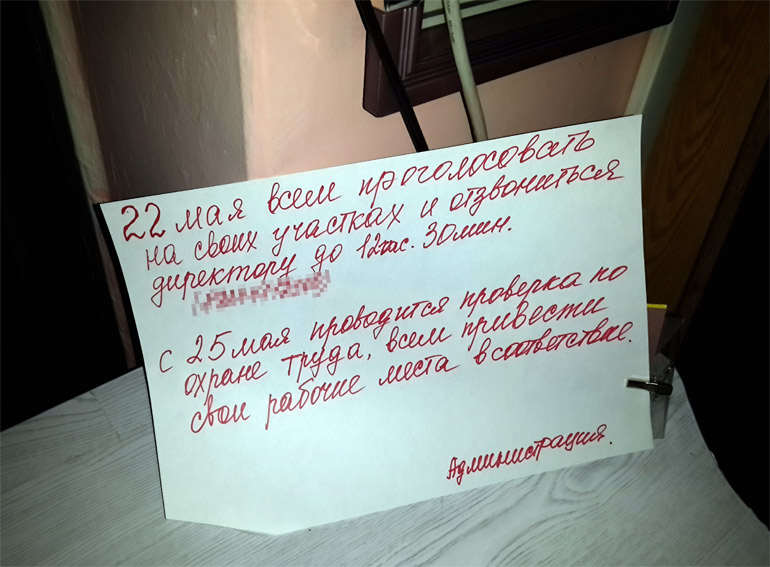 22 мая всем проголосовать
на своих участках и отзвониться
директору до 12час. 30мин.
с 25 мая проводится проверка по
охране труда, всем привести
свои рабочие места в соответствие.
Администрация.